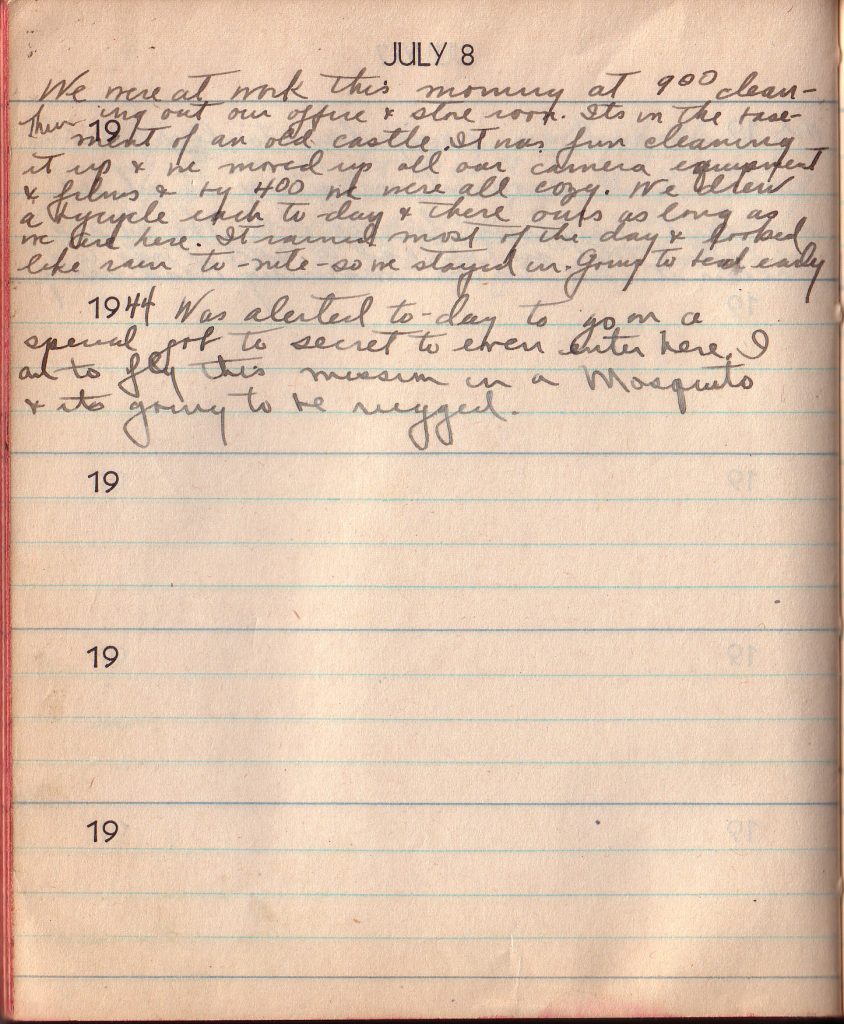 JULY 8
We were at work this morning at 900 clean-
ing out our office & store room. Its in the base-
Thur 19 ment of an old castle. It was fun cleaning
it up & we moved up all our camera equipment
& films & by 400 we were all cozy. We drew
a bycycle each to-day & there ours as long as
we are here. It rained most of the day & looked
like rain to-nite-so we stayed in. Going to bed early
1944 Was alerted to-day to go on a
special job to secret to even enter here. I
am to fly this mission in a Mosquito
& its going to be rugged.
19
19
19